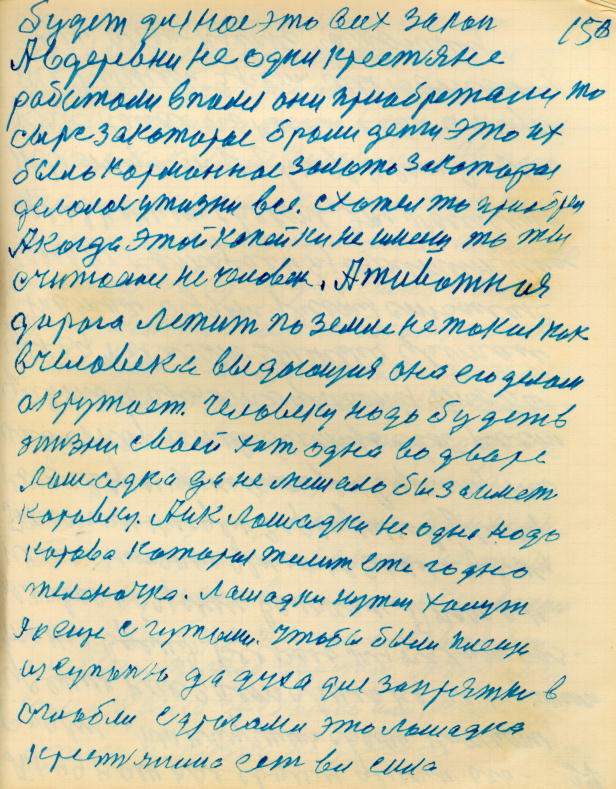 будет для нас это всех закон 158
А в деревни не одни крестьяне
работали в поли они приобретали то
сырё за каторае брали дети это их
было карманное золото за каторае
делолас у жизни все. схател то приобрел
А когда этой копейки не имеиш то ты
считаеш не человек. А животная
дорога лежит по земле не токая как
в человека выдающия она его делом
окружает. Человеку надо будет в
жизни своей хат одна во дваре
лашадка да не мешало бы заиметь
каровку. А и к лашадки не одна надо
карова каторая телит еже годно
теленочка. Лашадки нужен хамут
да дуга для запряжки в
оглобли с дрогами это лашадка
крестьянина есть ви сила